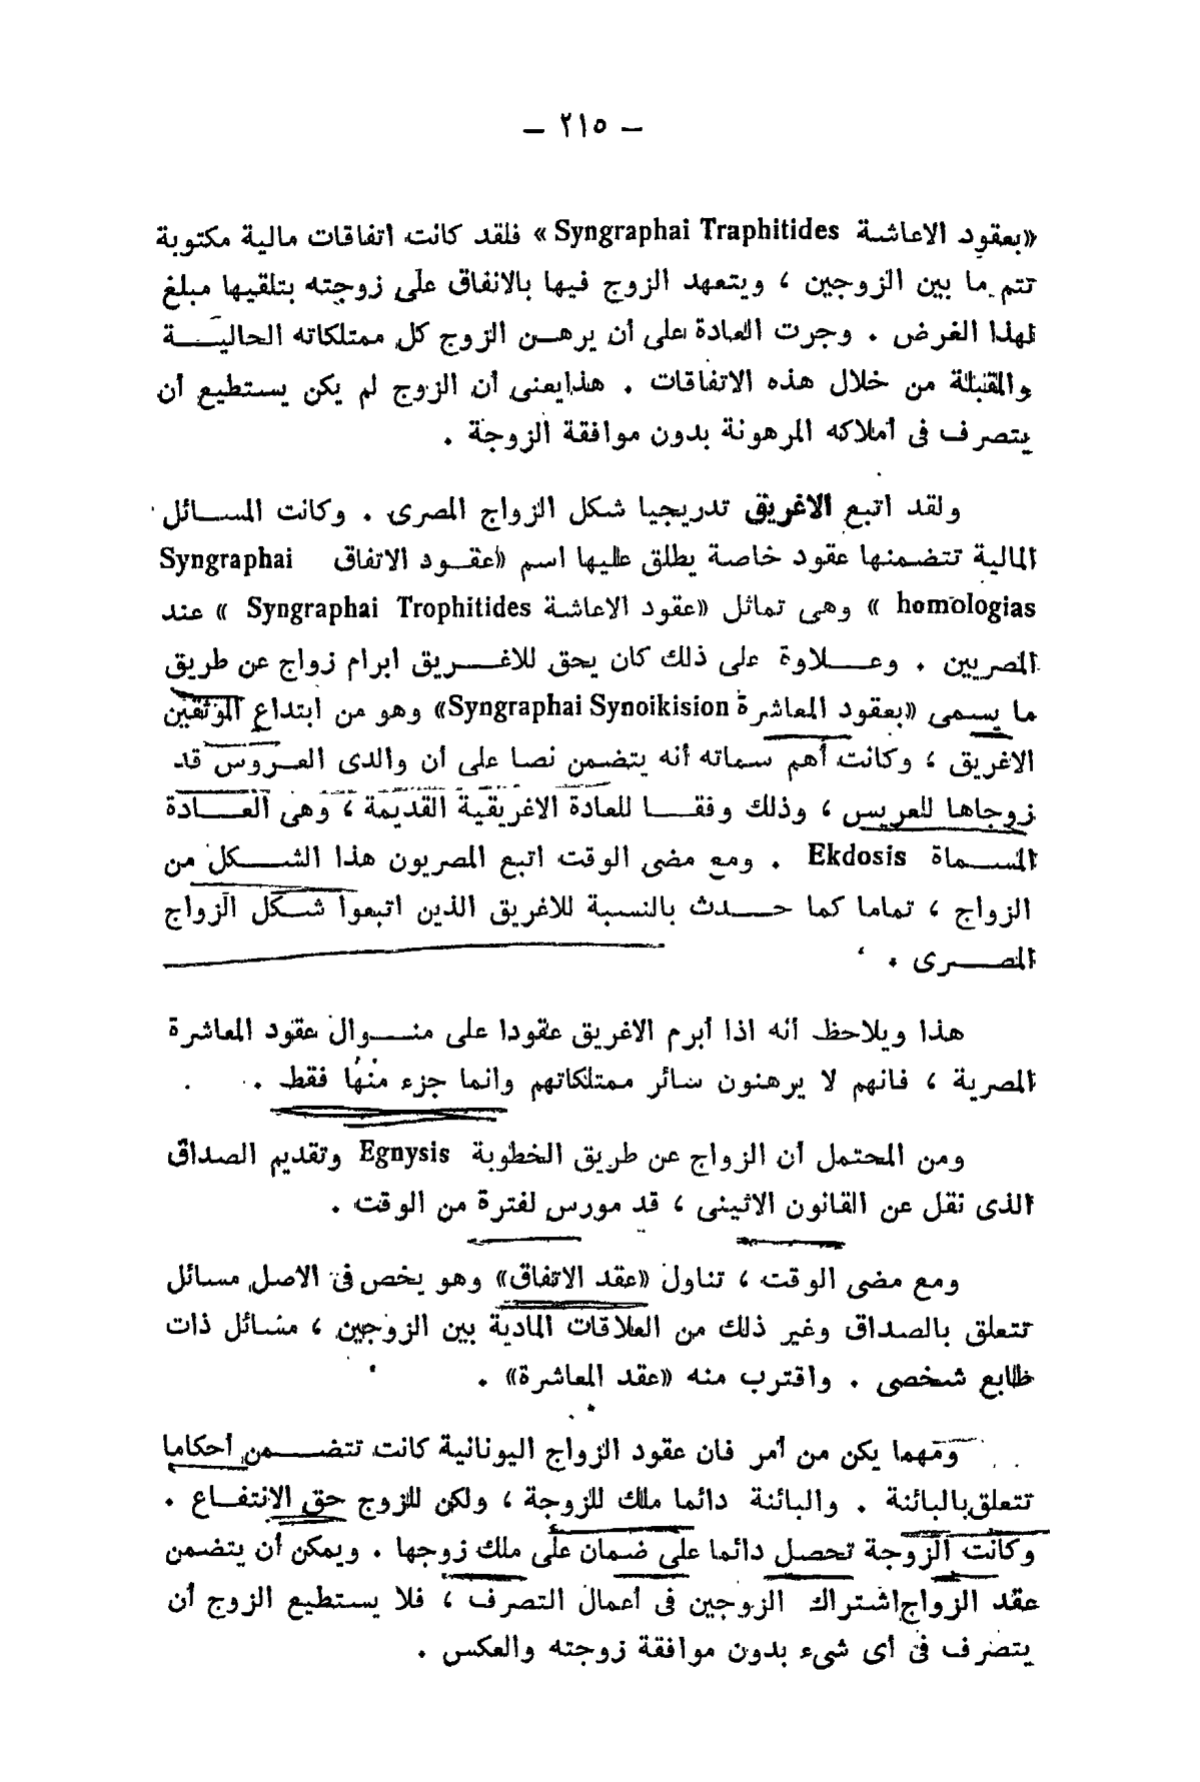 — ٢١٥ —
«بعقود الاعاشة Syngraphai Traphitides » فلقد كانت اتفاقات مالية مكتوبة
تتم ما بين الزوجين ، ويتعهد الزوج فيها بالانفاق على زوجته بتلقيها مبلغ
لهذا الغرض . وجرت العادة على أن يرهن الزوج كل ممتلكاته الحالية
والمقبلة من خلال هذه الاتفاقات . هذايعنى أن الزوج لم يكن يستطيع أن
يتصرف فى أملاكه المرهونة بدون موافقة الزوجة .
ولقد اتبع الاغريق تدريجيا شكل الزواج المصرى . وكانت المسائل
المالية تتضمنها عقود خاصة يطلق عليها اسم «عقود الاتفاق Syngraphai
homologias » وهى تماثل «عقود الاعاشة Syngraphai Trophitides » عند
المصريين . وعلاوة على ذلك كان يحق للاغريق ابرام زواج عن طريق
ما يسمى «بعقود المعاشرة Syngraphai Synoikision» وهو من ابتداع الموثقين
الاغريق ، وكانت أهم سماته أنه يتضمن نصا على أن والدى العروس قد
زوجاها للعريس ، وذلك وفقا للعادة الاغريقية القديمة ، وهى العادة
المسماة Ekdosis . ومع مضى الوقت اتبع المصريون هذا الشكل من
الزواج ، تماما كما حدث بالنسبة للاغريق الذين اتبعوا شكل الزواج
المصرى .
هذا ويلاحظ أنه اذا أبرم الاغريق عقودا على منوال عقود المعاشرة
المصرية ، فانهم لا يرهنون سائر ممتلكاتهم وانما جزء منها فقط .
ومن المحتمل أن الزواج عن طريق الخطوبة Egnysis وتقديم الصداق
الذى نقل عن القانون الاثينى ، قد مورس لفترة من الوقت .
ومع مضى الوقت ، تناول «عقد الاتفاق» وهو يخص فى الاصل مسائل
تتعلق بالصداق وغير ذلك من العلاقات المادية بين الزوجين ، مسائل ذات
طابع شخصى . واقترب منه «عقد المعاشرة» .
ومهما يكن من أمر فان عقود الزواج اليونانية كانت تتضمن أحكاما
تتعلق بالبائنة . والبائنة دائما ملك للزوجة ، ولكن للزوج حق الانتفاع .
وكانت الزوجة تحصل دائما على ضمان على ملك زوجها . ويمكن أن يتضمن
عقد الزواج اشتراك الزوجين فى أعمال التصرف ، فلا يستطيع الزوج أن
يتصرف فى أى شىء بدون موافقة زوجته والعكس .